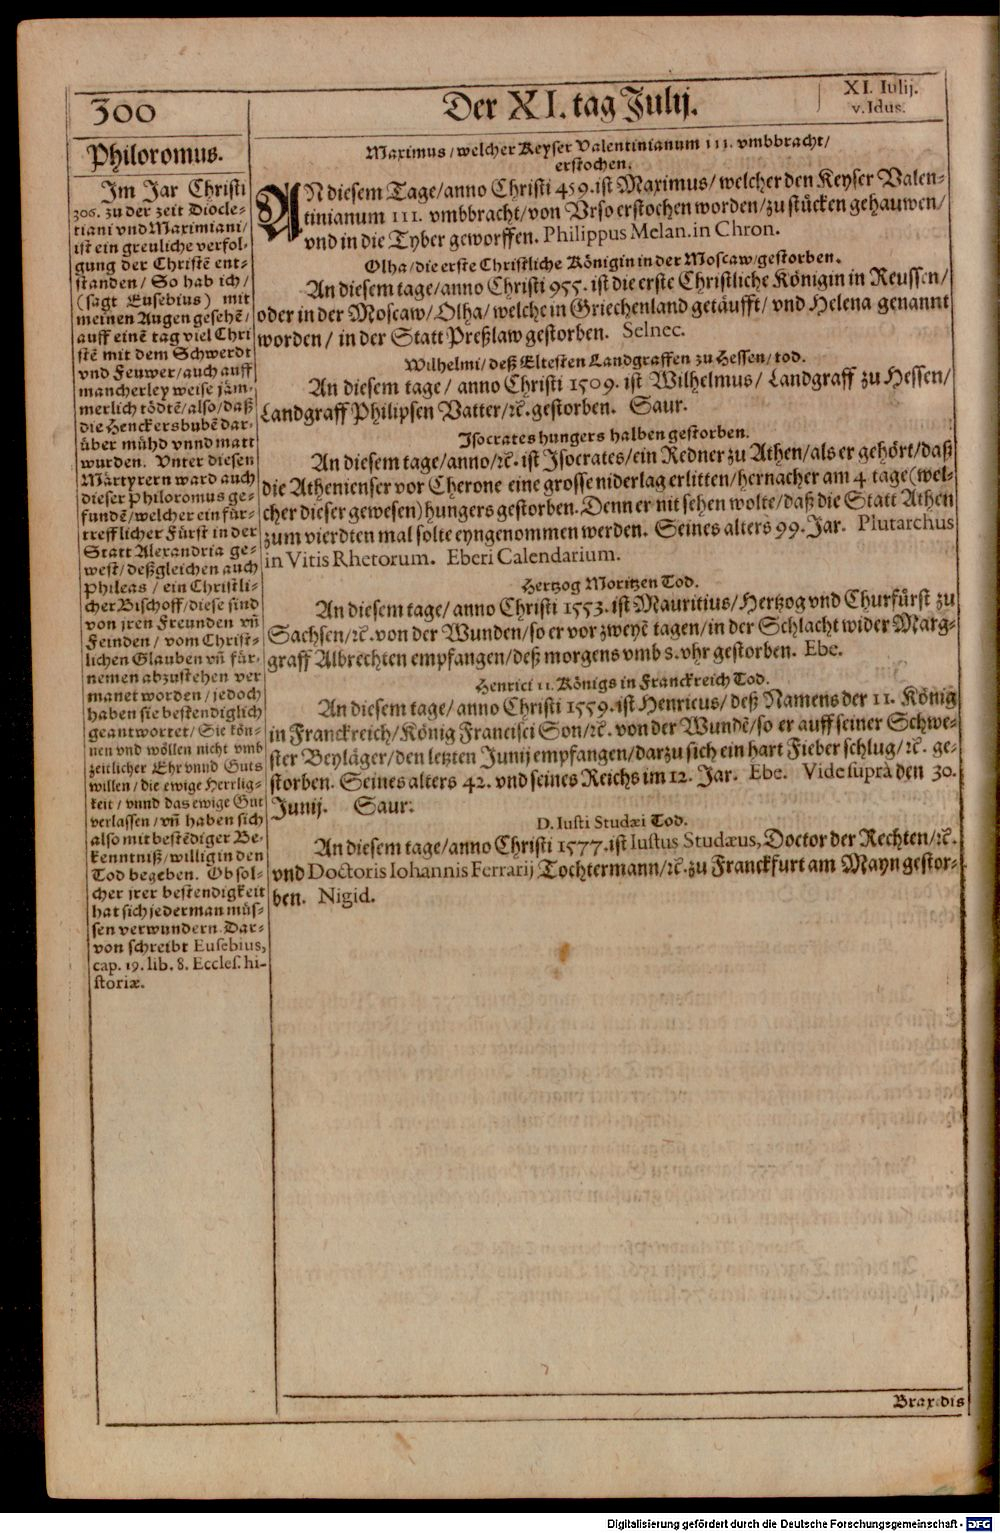 300
Der XI. tag Julij.
XI. Iulij.
v. Idus.
Philoromus.
Im Jar Christi
306. zu der zeit Diocle-
tiani vnd Maximiani/
ist ein greuliche verfol-
gung der Christē ent-
standen/ So hab ich/
(sagt Eusebius) mit
meinen Augen gesehē/
auff einē tag viel Chri
stē mit dem Schwerdt
vnd Feuwer/auch auff
mancherley weise jäm-
merlich tödtē/also/daß
die Henckersbubē dar-
über mühd vnnd matt
wurden. Vnter diesen
Märtyrern ward auch
dieser Philoromus ge-
fundē/welcher ein für-
trefflicher Fürst in der
Statt Alexandria ge-
west/deßgleichen auch
Phileas / ein Christli-
cher Bischoff/diese sind
von jren Freunden vñ
Feinden / vom Christ-
lichen Glauben vñ für-
nemen abzustehen ver
manet worden/jedoch
haben sie bestendiglich
geantwortet/Sie kön-
nen vnd wöllen nicht vmb
zeitlicher Ehr vnnd Guts
willen/die ewige Herrlig-
keit / vnnd das ewige Gut
verlassen/vñ haben sich
also mit bestēdiger Be-
kenntniß/willig in den
Tod begeben. Ob sol-
cher jrer bestendigkeit
hat sich jederman müs-
sen verwundern. Dar-
von schreibt Eusebius,
cap. 19. lib. 8. Eccles. hi-
storiæ.
Maximus/welcher Keyser Valentinianum III. vmbbracht/
erstochen.
AN diesem Tage/anno Christi 459. ist Maximus/welcher den Keyser Valen-
tinianum III. vmbbracht/von Vrso erstochen worden/zu stücken gehauwen/
vnd in die Tyber geworffen. Philippus Melan. in Chron.
Olha/die erste Christliche Königin in der Moscaw/gestorben.
An diesem tage/anno Christi 955. ist die erste Christliche Königin in Reussen/
oder in der Moscaw/Olha/welche in Griechenland getäufft/vnd Helena genannt
worden/ in der Statt Preßlaw gestorben. Selnec.
Wilhelmi/deß Eltesten Landgraffen zu Hessen/tod.
An diesem tage/ anno Christi 1509. ist Wilhelmus/ Landgraff zu Hessen/
Landgraff Philipsen Vatter/ꝛc. gestorben. Saur.
Isocrates hungers halben gestorben.
An diesem tage/anno/ꝛc. ist Isocrates/ein Redner zu Athen/als er gehört/daß
die Athenienser vor Cherone eine grosse niderlag erlitten/hernacher am 4 tage (wel-
cher dieser gewesen) hungers gestorben. Denn er nit sehen wolte/daß die Statt Athen
zum vierdten mal solte eyngenommen werden. Seines alters 99. Jar. Plutarchus
in Vitis Rhetorum. Eberi Calendarium.
Hertzog Moritzen Tod.
An diesem tage/ anno Christi 1553. ist Mauritius/Hertzog vnd Churfürst zu
Sachsen/ꝛc. von der Wunden/so er vor zweyē tagen/in der Schlacht wider Marg-
graff Albrechten empfangen/deß morgens vmb 8. vhr gestorben. Ebe.
Henrici II. Königs in Franckreich Tod.
An diesem tage/ anno Christi 1559. ist Henricus/ deß Namens der II. König
in Franckreich/König Francisci Son/ꝛc. von der Wundē/so er auff seiner Schwe-
ster Beyläger/den letzten Junij empfangen/darzu sich ein hart Fieber schlug/ꝛc. ge-
storben. Seines alters 42. vnd seines Reichs im 12. Jar. Ebe. Vide suprà den 30.
Junij. Saur.
D. Iusti Studæi Tod.
An diesem tage/anno Christi 1577. ist Iustus Studæus, Doctor der Rechten/ꝛc.
vnd Doctoris Iohannis Ferrarij Tochtermann/ꝛc. zu Franckfurt am Mayn gestor-
ben. Nigid.
Braxedis
Digitalisierung gefördert durch die Deutsche Forschungsgemeinschaft - DFG